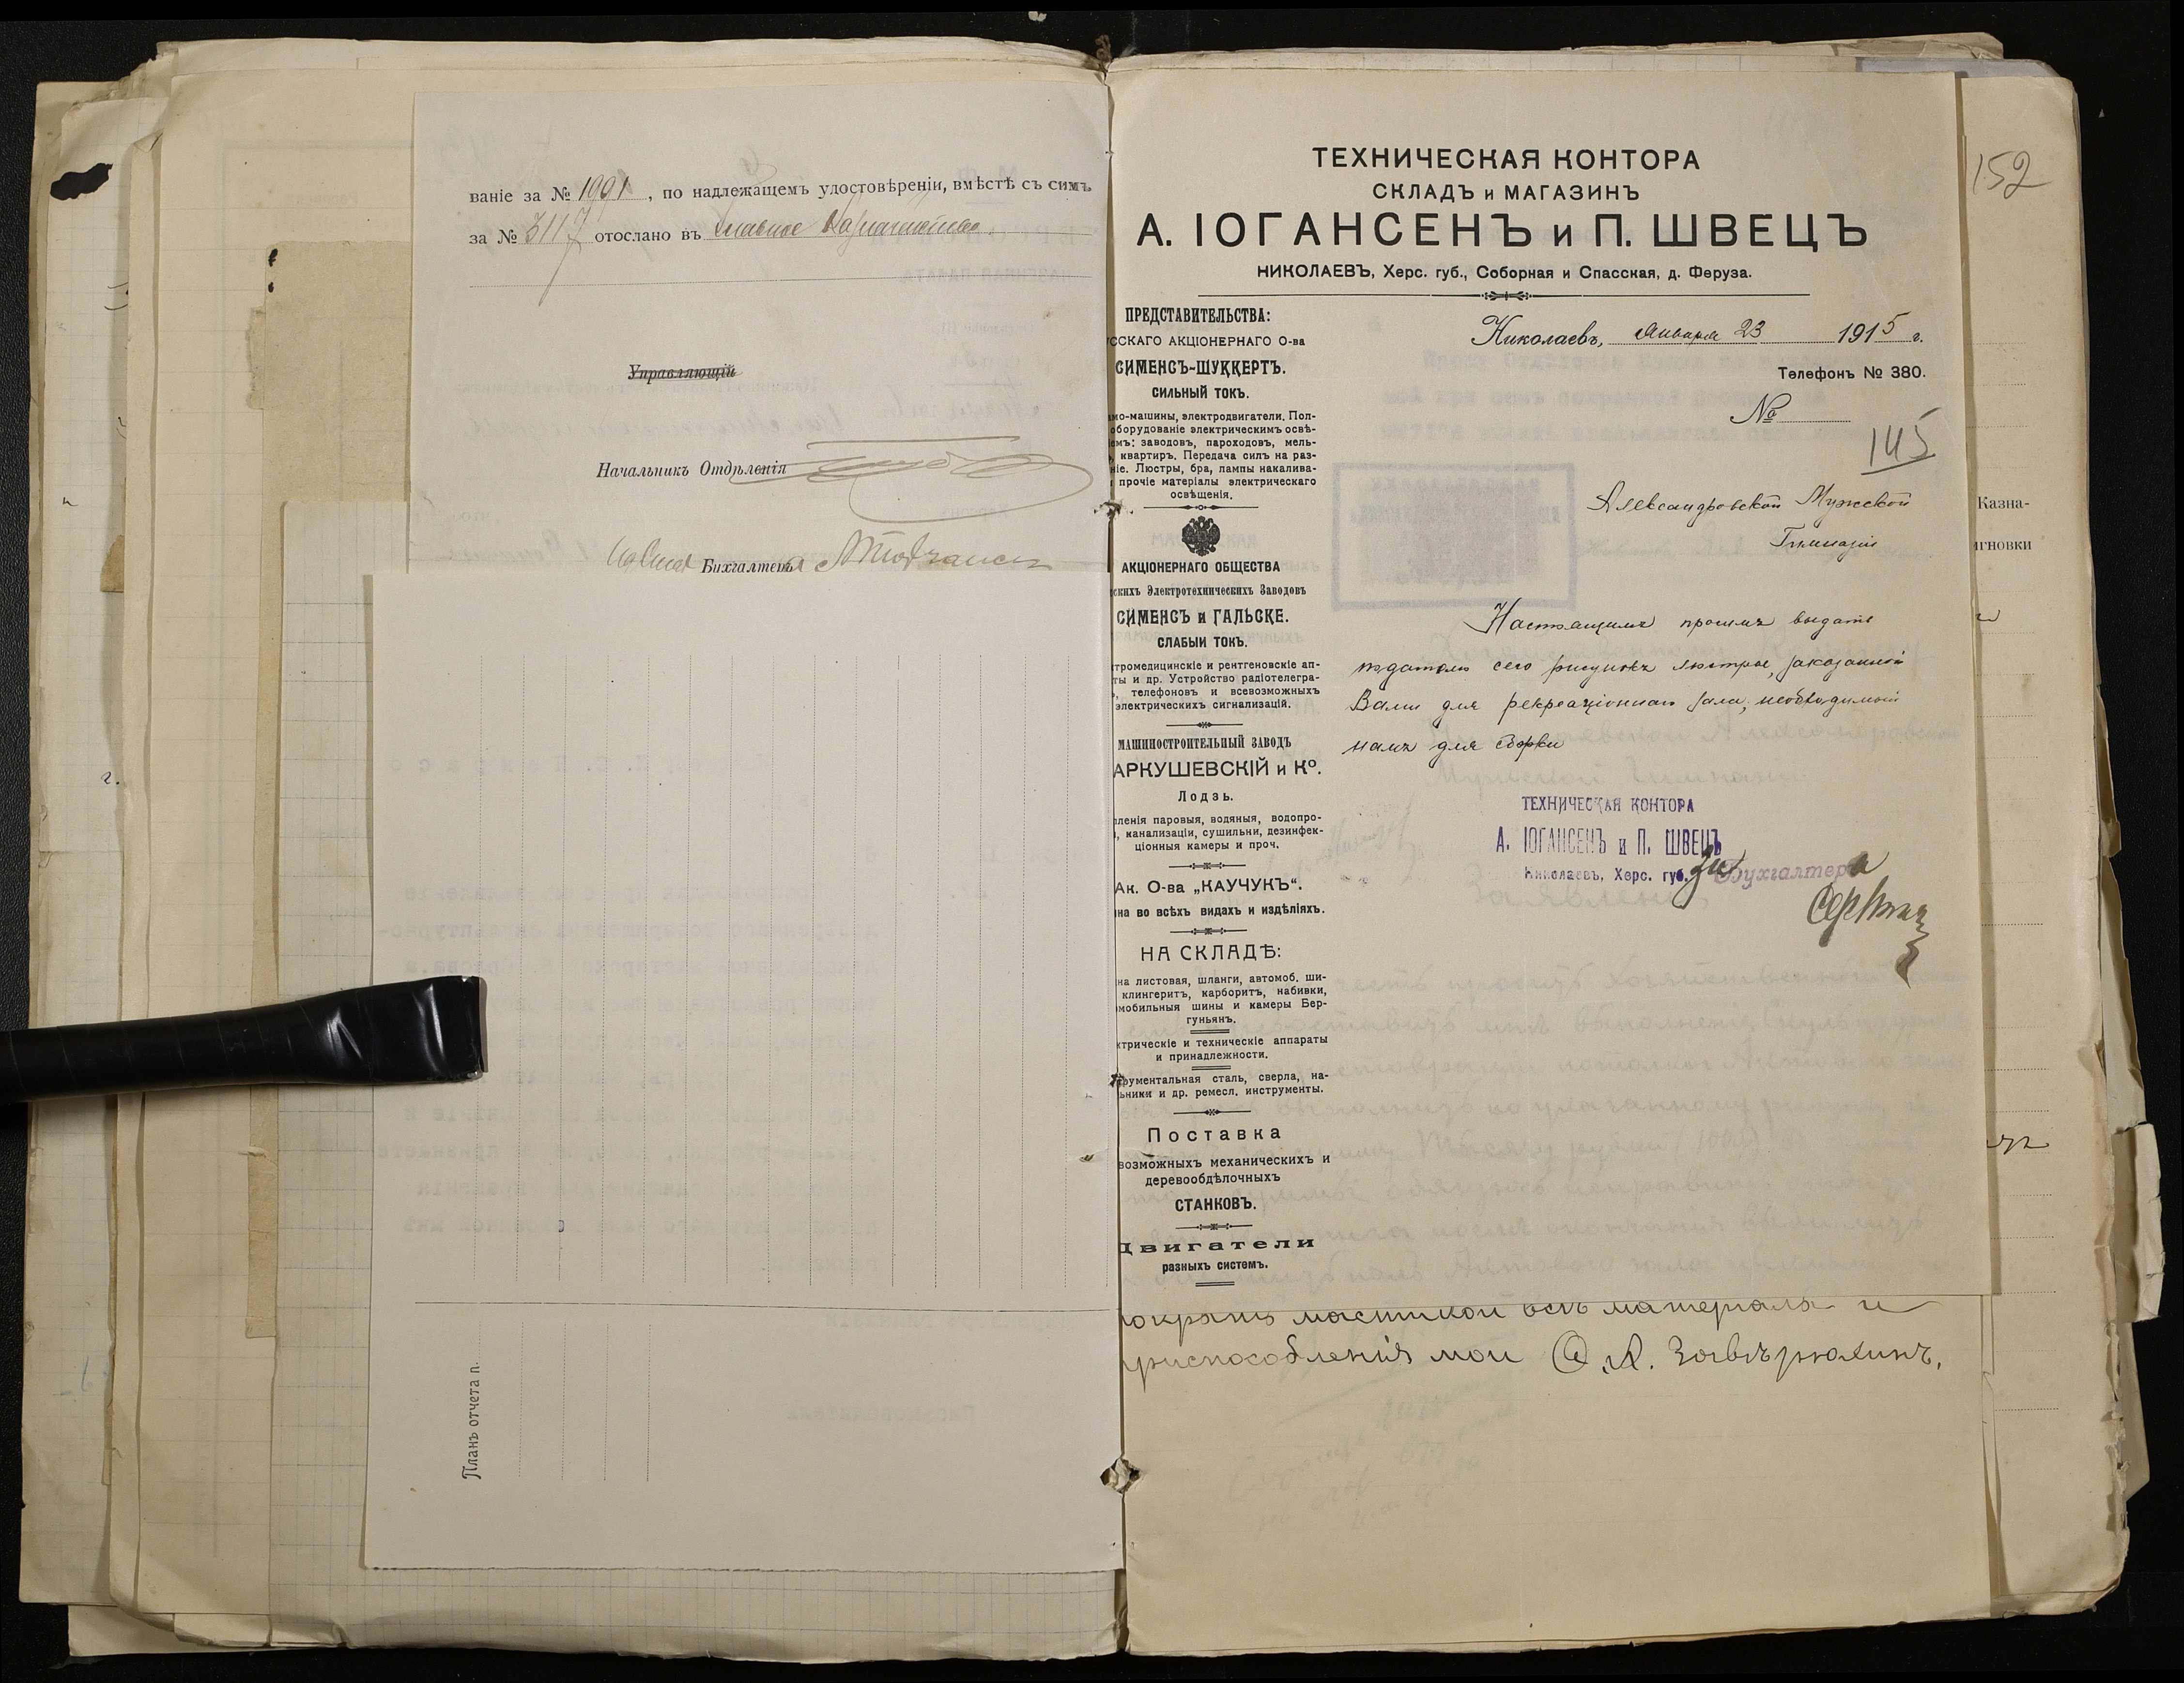 ваніе за № 1991, по надлежащемъ удостовѣреніи, вмѣстѣ съ симъ
за № 3117 отослано въ Главное Казначейство.
Управляющій
Начальникъ Отдѣленія
Бухгалтера
Планъ отчета п.
ТЕХНИЧЕСКАЯ КОНТОРА
СКЛАДЪ и МАГАЗИНЪ
А. ІОГАНСЕНЪ и П. ШВЕЦЪ
НИКОЛАЕВЪ, Херс. губ., Соборная и Спасская, д. Феруза.
ПРЕДСТАВИТЕЛЬСТВА:
ССКАГО АКЦІОНЕРНАГО О-ва
СИМЕНСЪ-ШУККЕРТЪ.
СИЛЬНЫЙ ТОКЪ.
мо-машины, электродвигатели. Пол-
оборудованіе электрическимъ освѣ-
емъ: заводовъ, пароходовъ, мель-
квартиръ. Передача силъ на раз-
ніе. Люстры, бра, лампы накалива-
прочіе матеріалы электрическаго
освѣщенія.
АКЦІОНЕРНАГО ОБЩЕСТВА
скихъ Электротехническихъ Заводовъ
СИМЕНСЪ и ГАЛЬСКЕ.
СЛАБЫЙ ТОКЪ.
тромедицинскіе и рентгеновскіе ап-
ты и др. Устройство радіотелегра-
, телефоновъ и всевозможныхъ
электрическихъ сигнализацій.
МАШИНОСТРОИТЕЛЬНЫЙ ЗАВОДЪ
АРКУШЕВСКІЙ и Ко.
Лодзь.
пленія паровыя, водяныя, водопро-
, канализаціи, сушильни, дезинфек-
ціонныя камеры и проч.
Ак. О-ва „КАУЧУКЪ“.
на во всѣхъ видахъ и издѣліяхъ.
НА СКЛАДѢ:
на листовая, шланги, автомоб. ши-
клингеритъ, карборитъ, набивки,
мобильныя шины и камеры Бер-
гуньянъ.
ктрическіе и техническіе аппараты
и принадлежности.
трументальная сталь, сверла, на-
ьники и др. ремесл. инструменты.
Поставка
возможныхъ механическихъ и
деревообдѣлочныхъ
СТАНКОВЪ.
Двигатели
разныхъ системъ.
Николаевъ, Января 23 1915 г.
Телефонъ № 380.
№
145
Александровской Мужской
Гимназіи
Настоящимъ просимъ выдать
подателю сего рисунокъ люстры, заказанной
Вами для рекреаціоннаго зала, необходимый
намъ для сборки
ТЕХНИЧЕСКАЯ КОНТОРА
А. ІОГАНСЕНЪ и П. ШВЕЦЪ
Николаевъ, Херс. губ.
за Бухгалтера
мастикой всѣ матеріалы и
приспособленія мои Ѳ. А. Завѣрюхинъ.
152
Казна-
игновки
г.